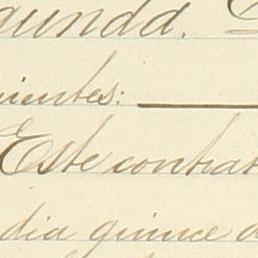 gunda.
uientes:
Este contrat
dia quince d